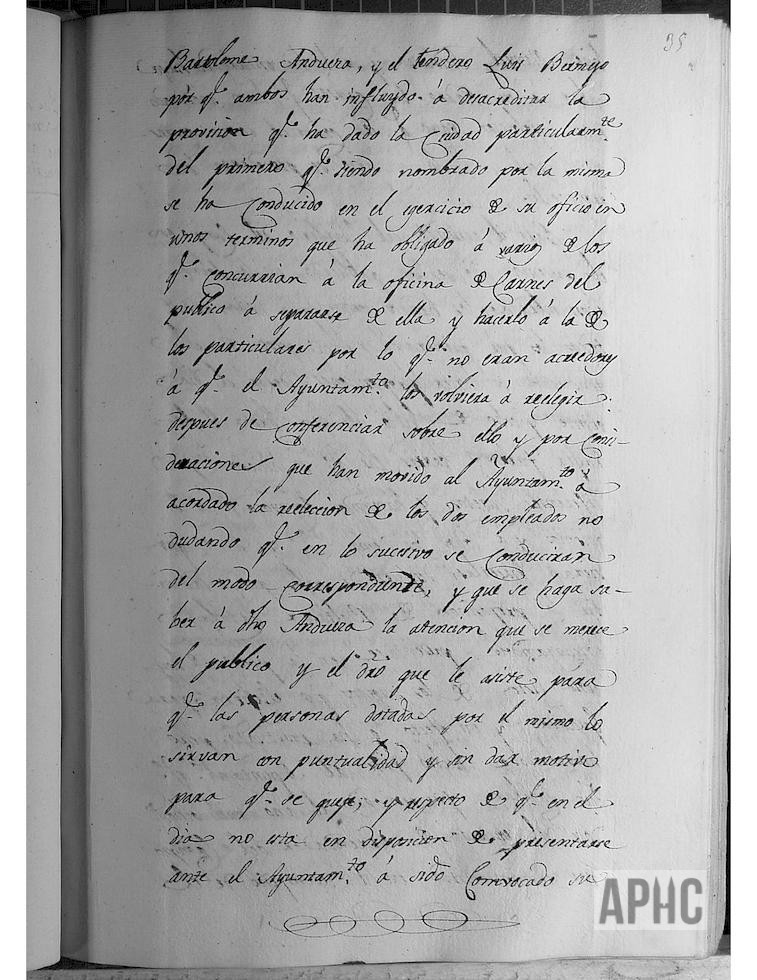 35
Bartolome Anduera, y el tendero Luis Bermejo
por q.e ambos han influydo á desacreditar la
provision q.e ha dado la Ciudad particularm.te
del primero q.e siendo nombrado por la misma
se ha Conducido en el egercicio de su oficio en
unos terminos que ha obligado á varios de los
q.e concurrian á la oficina de Carnes del
publico á separarse de ella y hacerlo á la de
los particulares por lo q.e no eran acredores
á q.e el Ayuntam.to los volviera á reelegir:
despues de Conferenciar sobre ello y por Consi-
deraciones que han movido al Ayuntam.to á
acordado la reeleccion de los dos empleados no
dudando q.e en lo sucesivo se Conduciran
del modo correspondiente, y que se haga sa-
ber á dho Anduera la atencion que se merece
el publico y el dro que le asiste para
q.e las personas dotadas por el mismo lo
sirvan con puntualidad y sin dar motivo
para q.e se queje; y respecto de q.e en el
dia no esta en disposicion de presentarse
ante el Ayuntam.to á sido Comvocado su
APHC